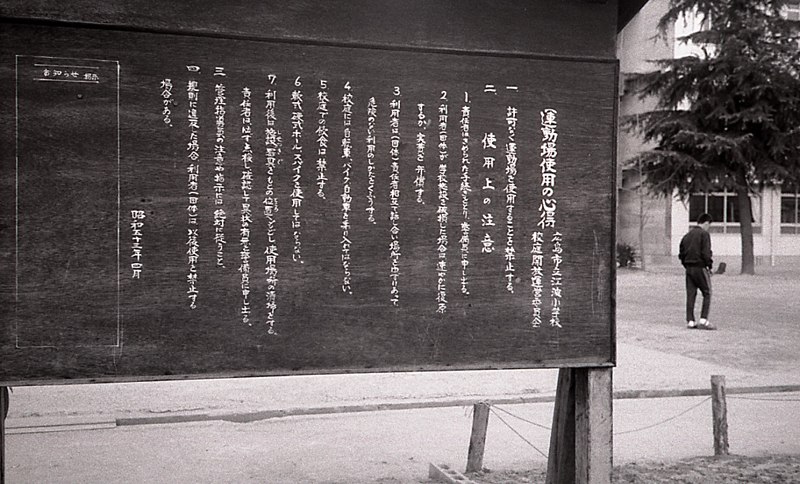 運動場使用の心得
広島市立江波小学校
校庭開放運営委員会
一 許可なく運動場を使用することを禁止する。
二 使用上の注意
1. 責任者はきめられた手続をとり、
2. 利用者(団体)が学校施設を破損した場合は速やかに復原
するか、実費を弁償する。
3. 利用者は(団体)責任者相互で話し合い場所をゆずりあって
危険のない利用のしかたをくふうする。
4. 校庭には自転車、バイク、自動車を乗り入れてはならない。
5. 校庭での飲食は禁止する。
6. 軟式・硬式ボール、スパイクを使用してはならない。
7. 利用後は施設・器具をもとの位置へもどし使用場所の清掃をする。
責任者は必ず点検し確認して異状の有無を
三 管理指導員の注意や指示には絶対に従うこと。
四 規則に違反した場合、利用者(団体)は以後使用を禁止する
場合がある。
昭和五十三年四月
お知らせ 掲示